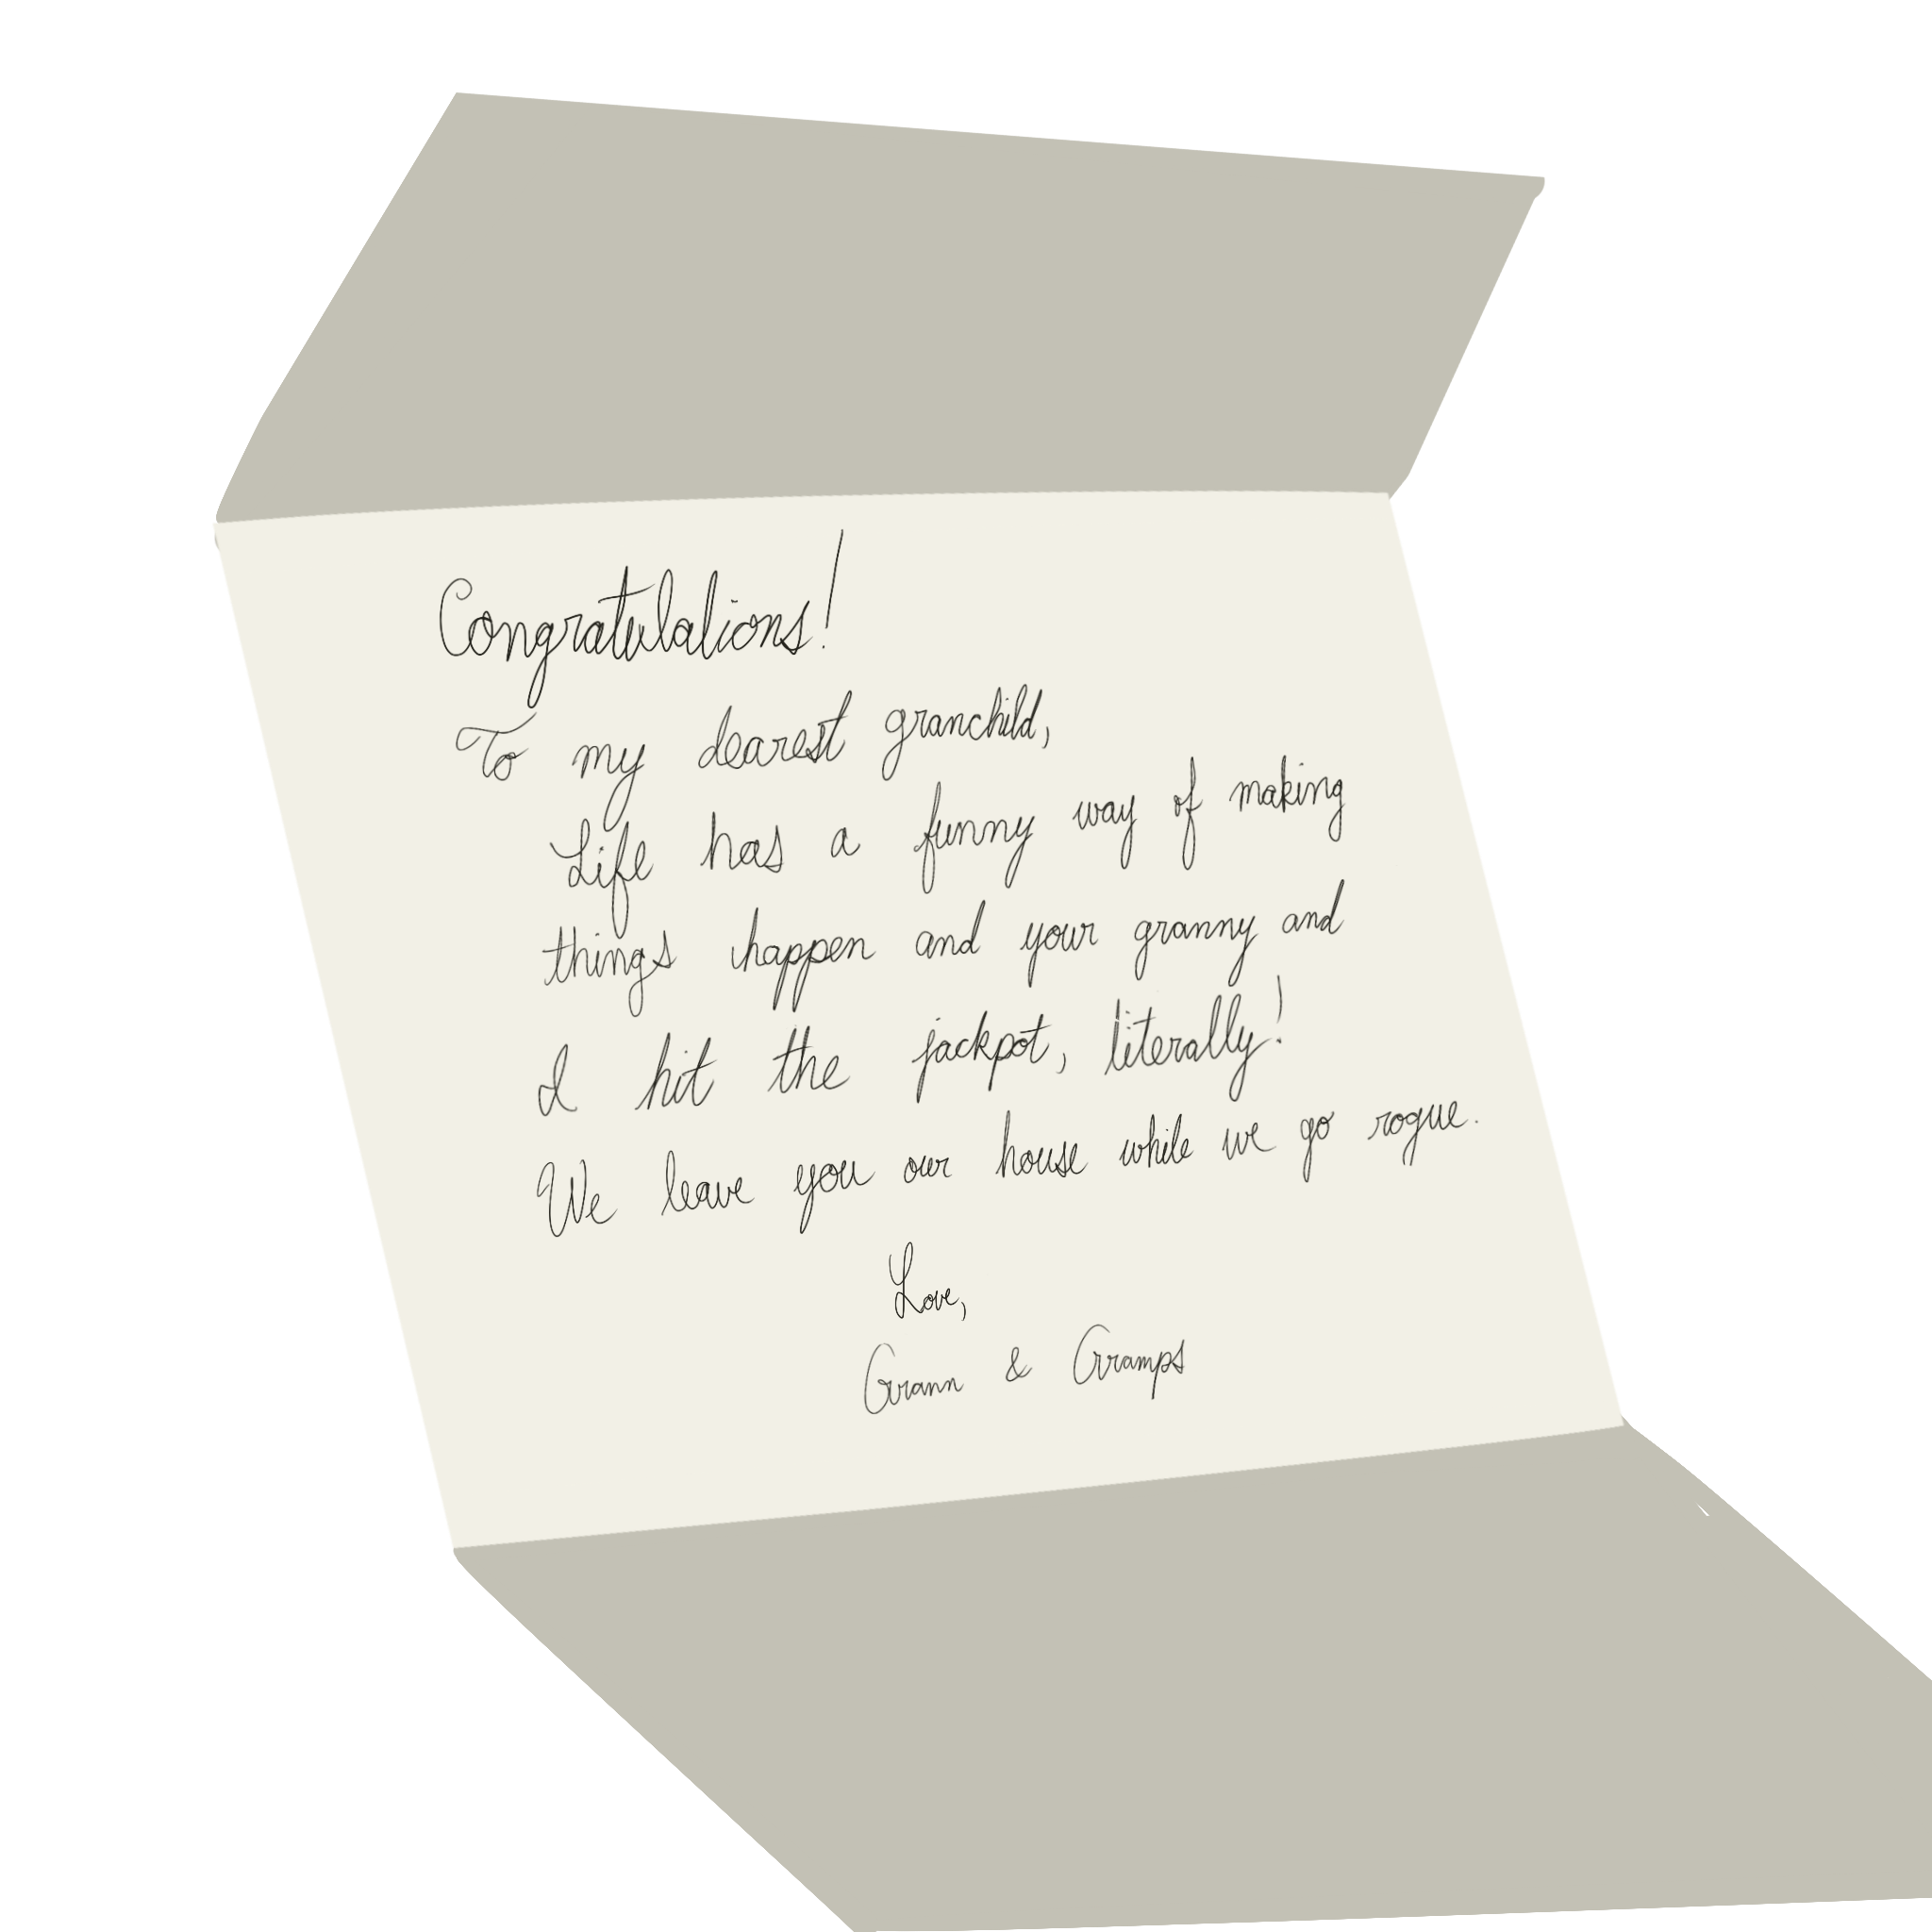 Congratulations!
To my dearest granchild,
Life has a funny way of making
things happen and your granny and
I hit the jackpot, literally!
We leave you our house while we go rogue.
Love,
Grann & Gramps